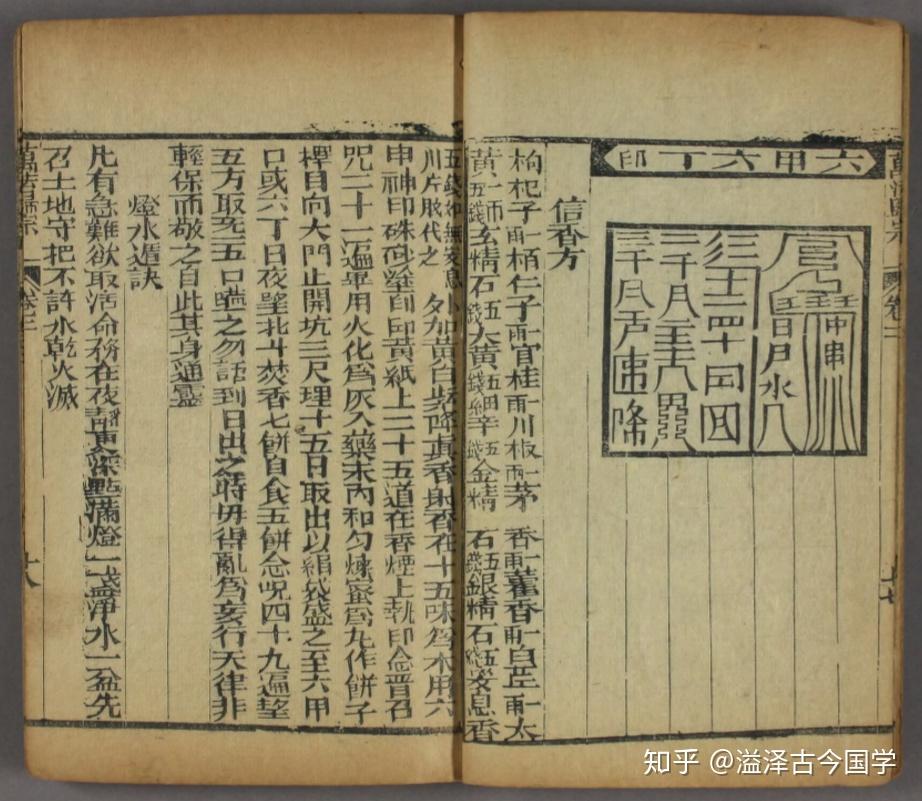 萬法歸宗 卷二 十七
六甲六丁印
信香方
枸杞子一兩栢仁子一兩官桂一兩川椒一兩茅香一兩藿香一兩白芷一兩太
黃五錢玄精石五錢大黃五錢細辛五錢金精石五錢銀精石五錢安息香
五錢如無安息川片脫代之 加黃白紫降真香射香在十五味為木用六
申神印硃砂塗印印黃紙上二十五道在香煙上執印念晉召
咒二十一遍畢用火化為灰入藥末內和勻煉蜜為丸作餅子
目向大門上開坑三尺理十五日取出以絹袋盛之至六甲
日或六丁日夜望北斗焚香七餅自食五餅念呪四十九遍望
五方取炁五口嚥之勿話到日出之時毋得亂為妄行天律非
輕保而敬之自此其身通靈
燈水遁訣
凡有急難欲取活命務在夜靜更深點滿燈一盞淨水一盆先
召土地守把不許水乾火滅
萬法歸宗 卷二 十八
知乎 @溢泽古今国学